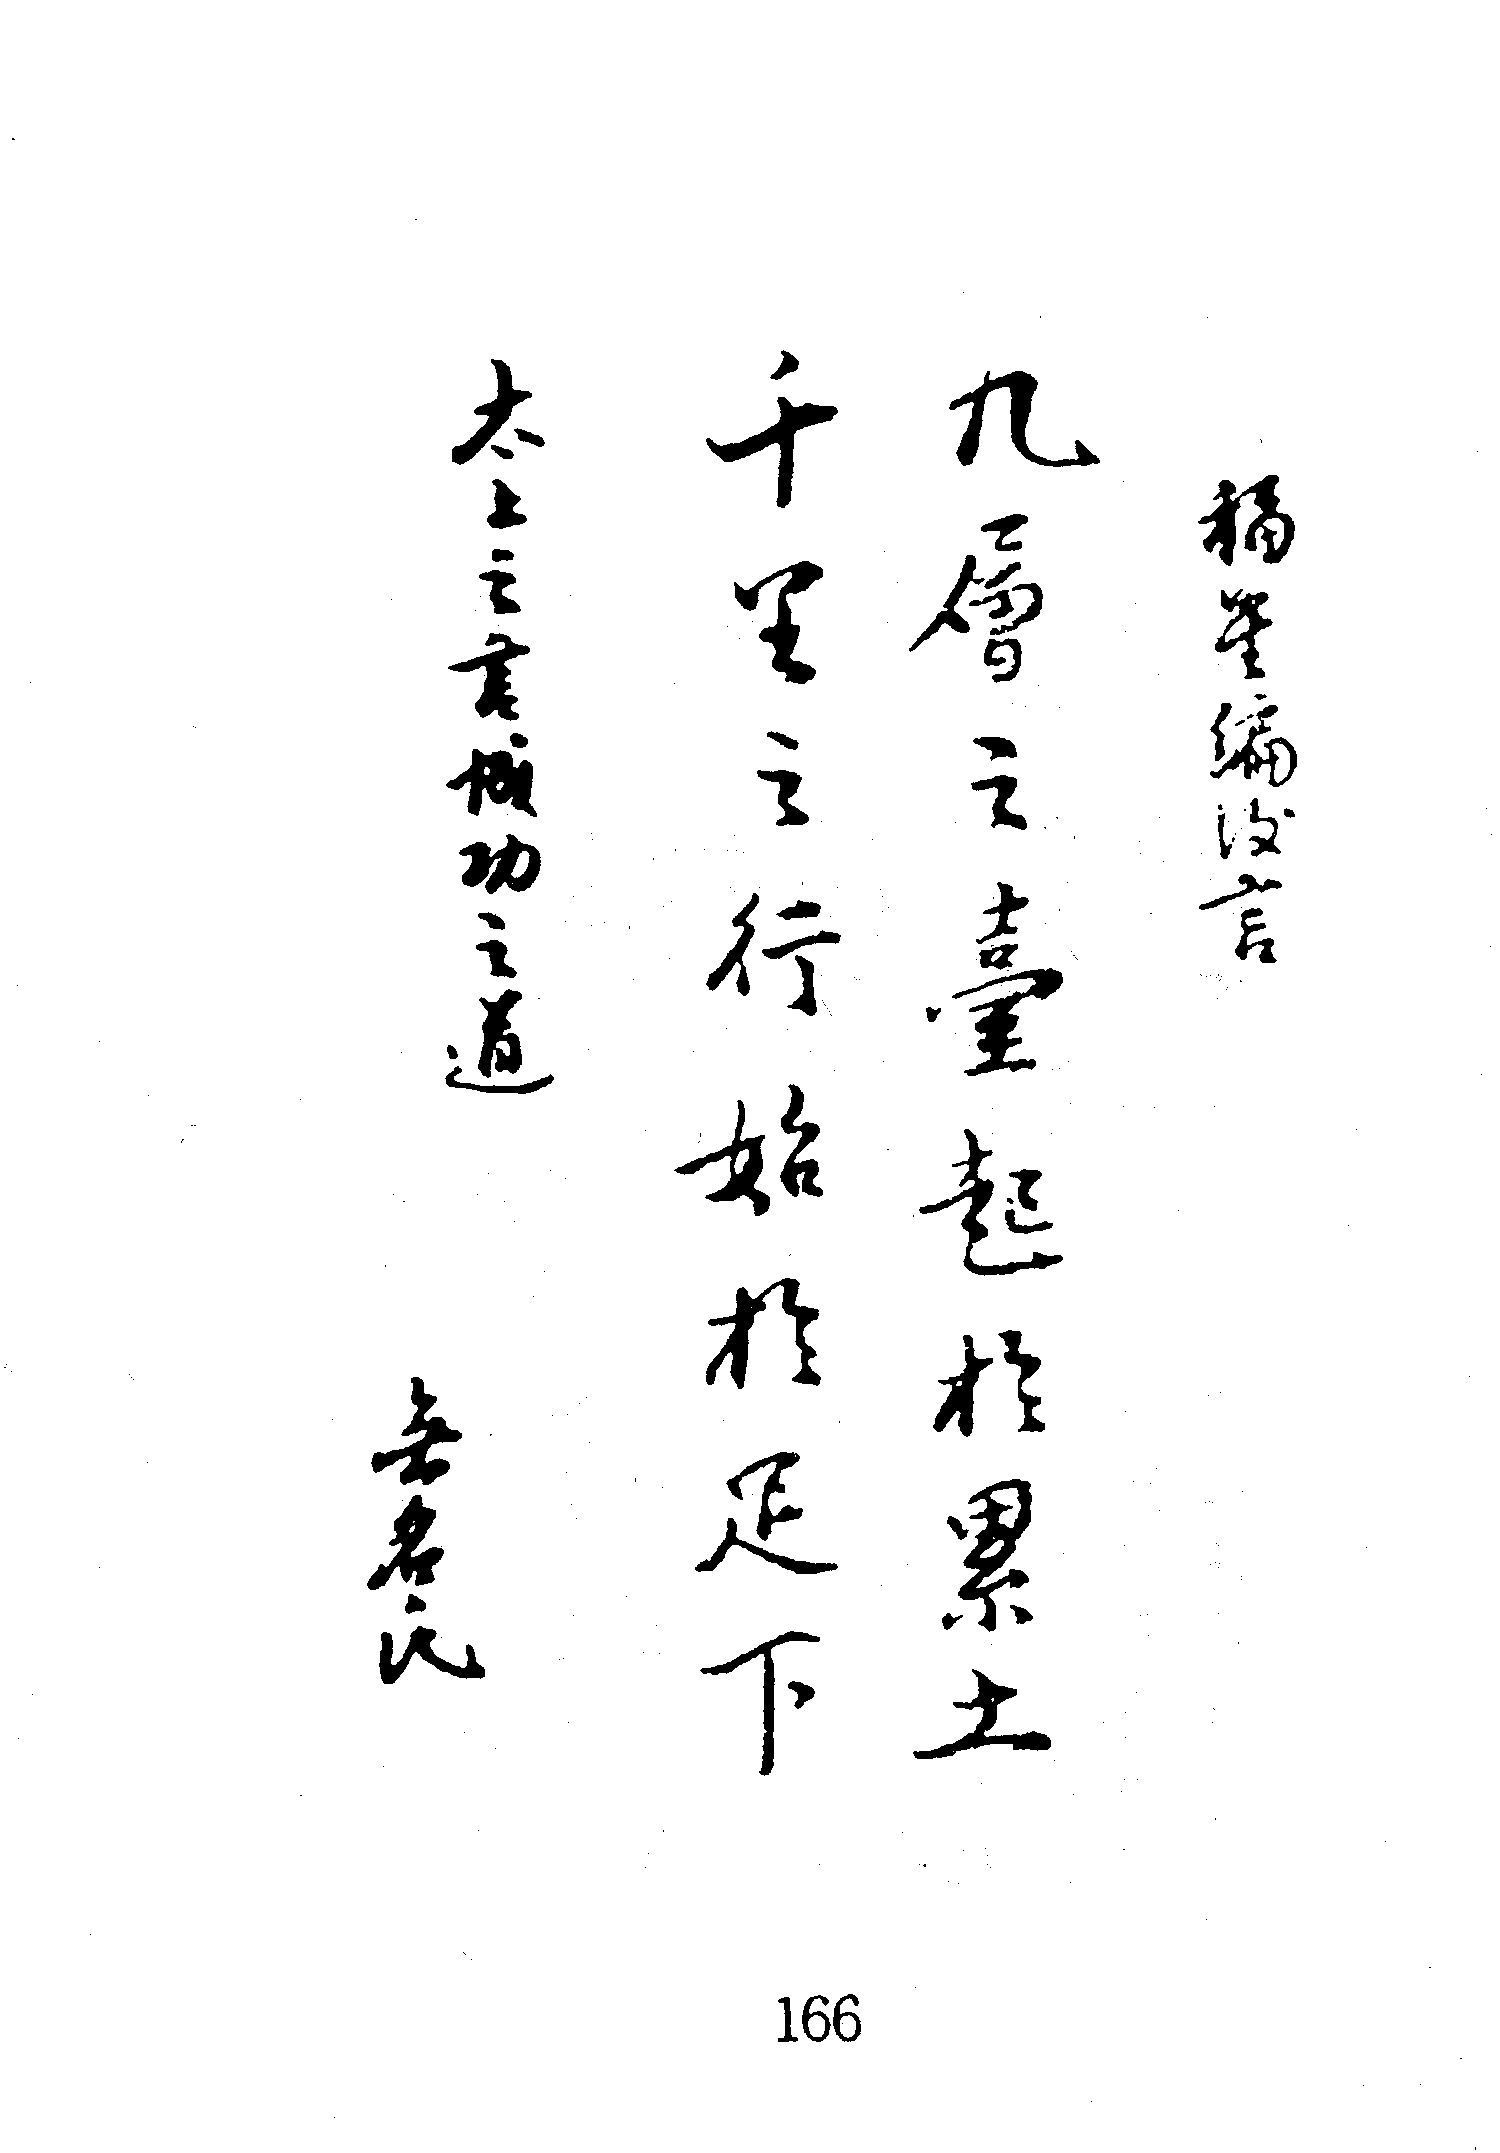 編後言
九層之臺起於累土
千里之行始於足下
太上之言功之道
無名氏
166